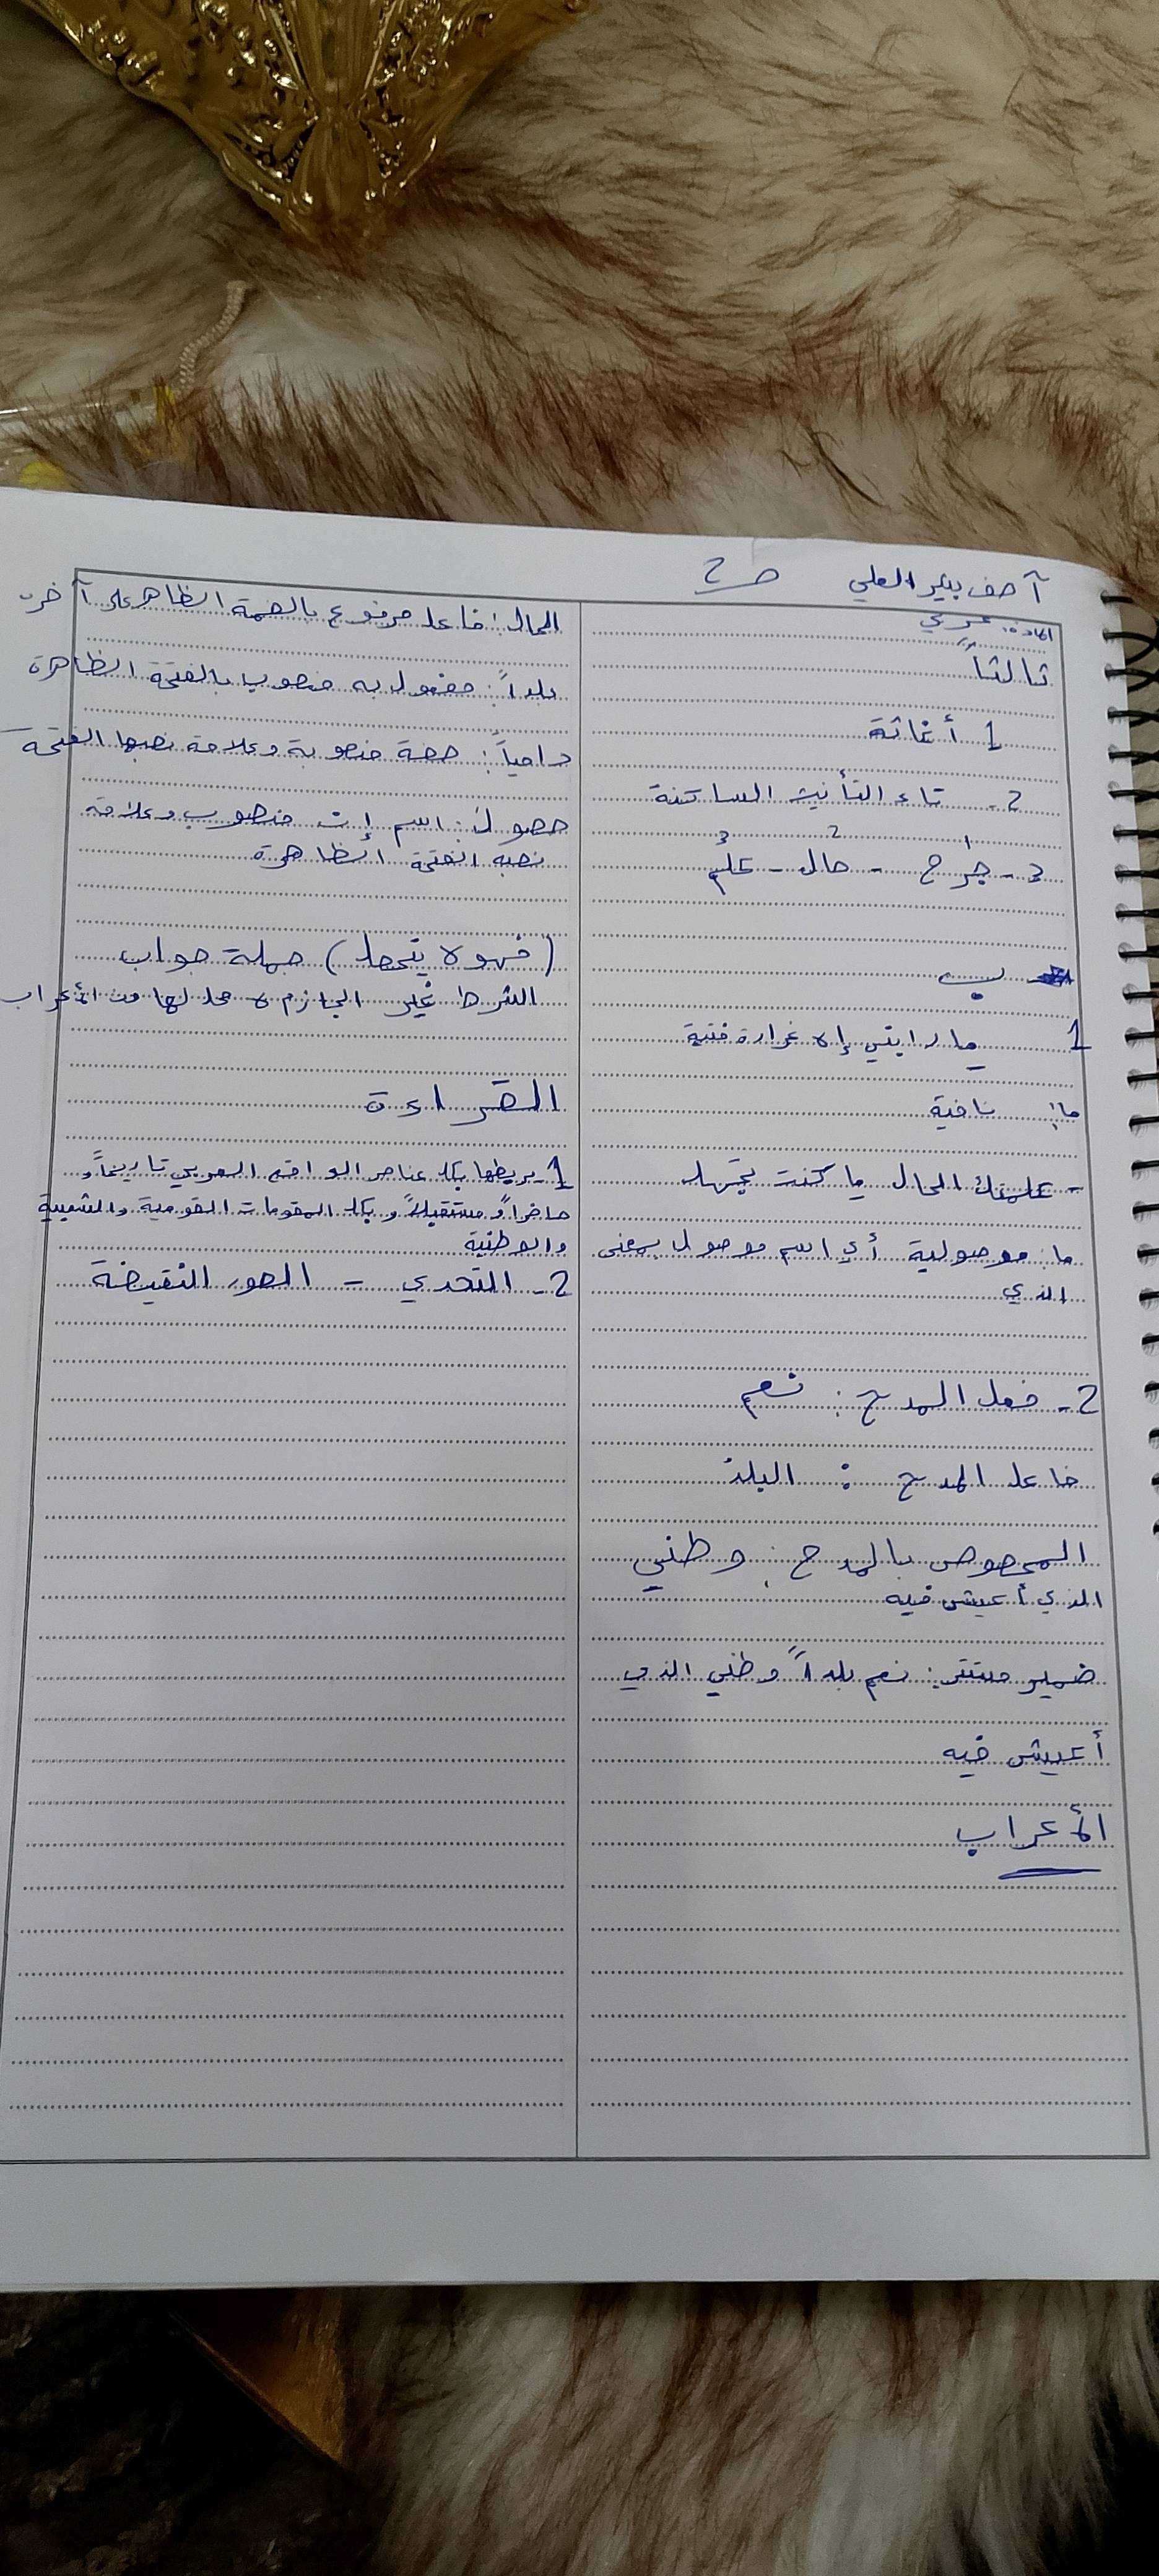 آصف بدير العلي ص2
المادة: عربي
ثالثاً
1 أغاثة
2- تاء التأنيث الساكنة
1 2 3
3- جرح - حال - علم
ب
1 ما رايتي إلا غرارة فتية
ما: نافية
- علمتك الحال ما كنت تجهل
ما: موصولية أي اسم موصول بمعنى
الذي
2- فعل المدح: نعم
فاعل المدح : البلدُ
المخصوص بالمدح: وطني
الذي أعيش فيه
ضمير مستتر: نعم بلداً وطني الذي
أعيش فيه
الأعراب
الحال: فاعل مرفوع بالضمة الظاهر على آخره
بلداً: مفعول به منصوب بالفتحة الظاهرة
دامياً: صفة منصوبة وعلامة نصبها الفتحة
حصول: اسم إن منصوب وعلامة
نصبه الفتحة الظاهرة
(فهو لا يتحمل) جملة جواب
الشرط غير الجازم لا محل لها من الأعراب
القراءة
1- يربطها بكل عناصر الواقع العربي تاريخاً و
حاضراً ومستقبلاً و بكل المقومات القومية والشعبية
والوطنية
2- التحدي - الصور النقيضة